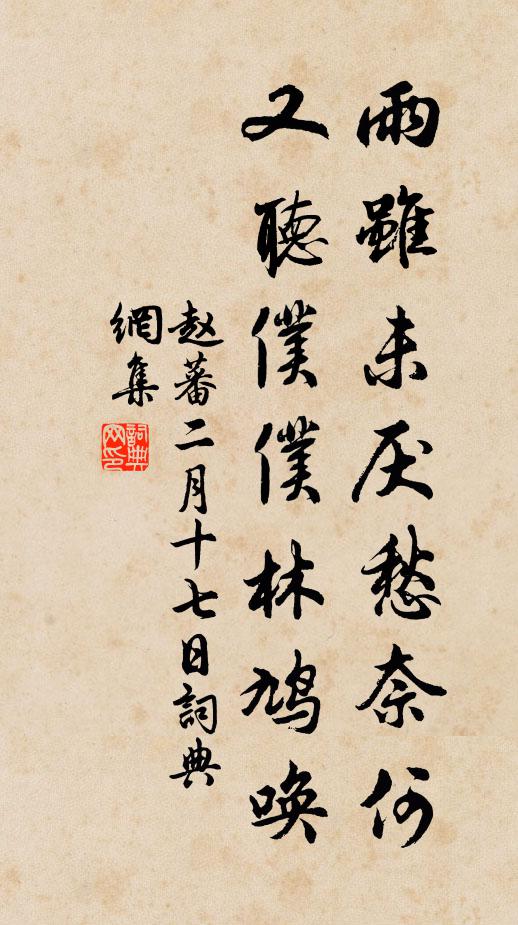 雨雖未厌愁奈何
又聽僕僕林鳩喚
赵蕃二月十七日詞典
網集
詞典网印